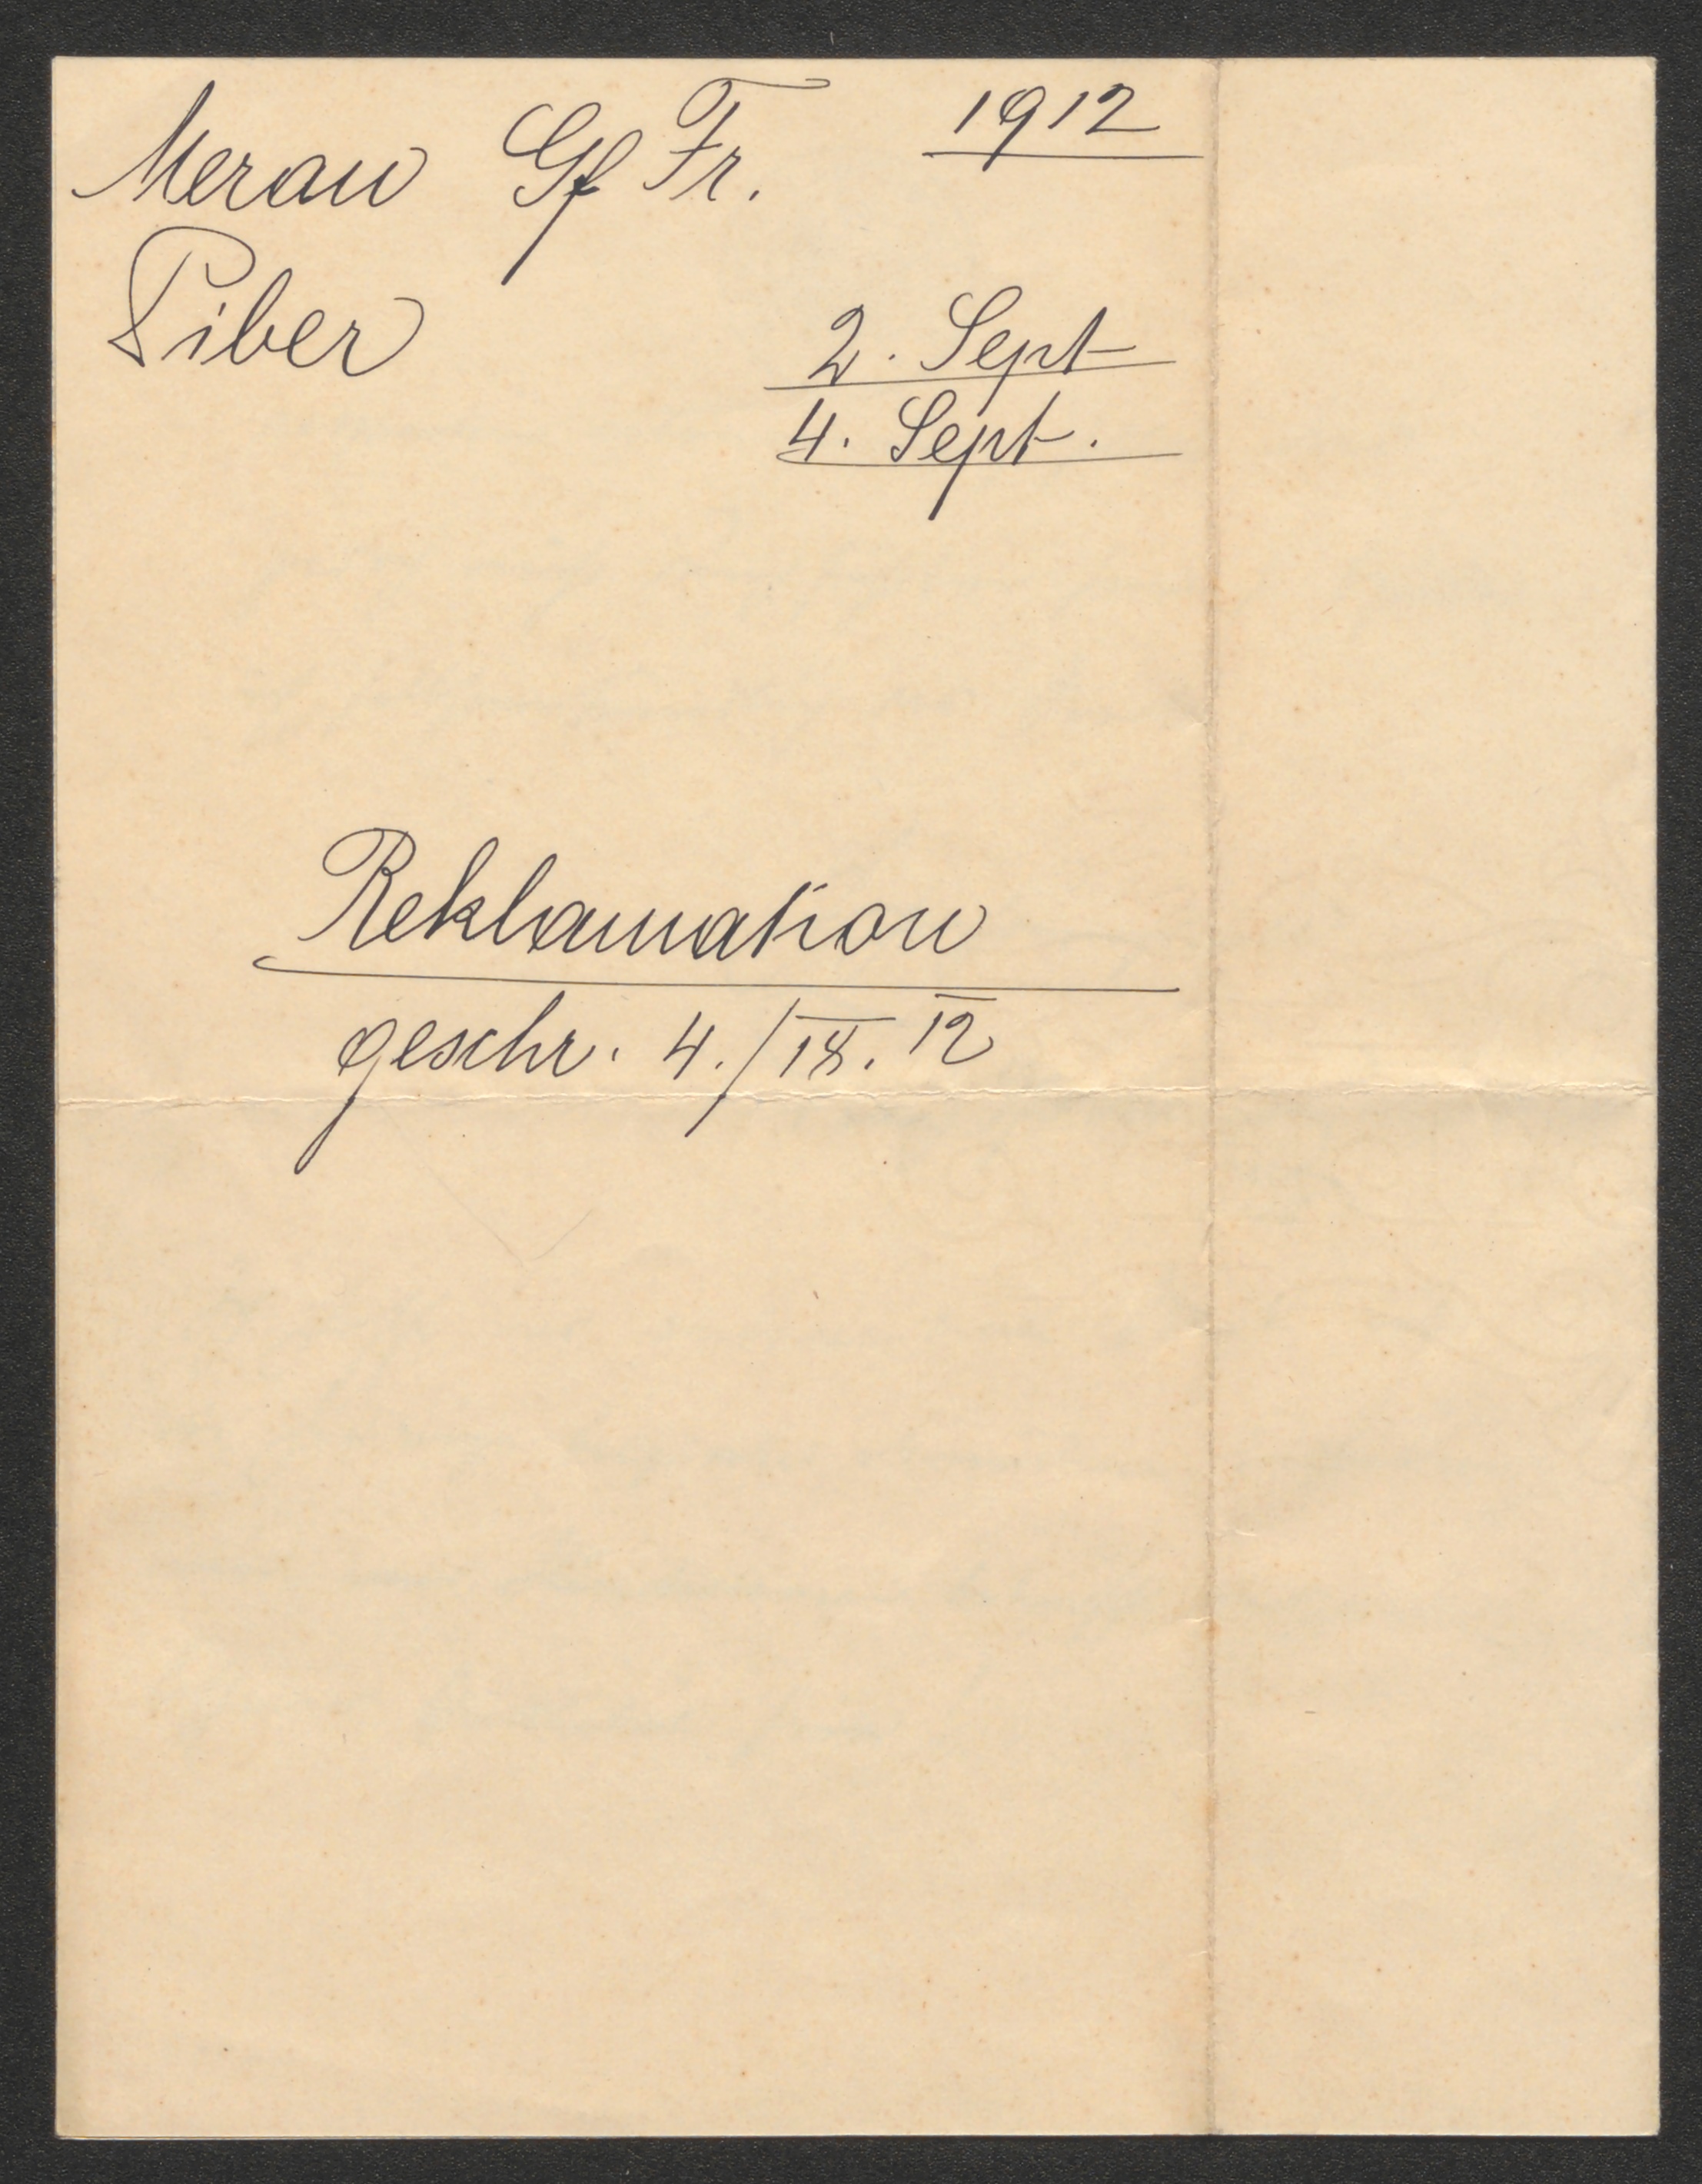 Meran Gf Fr. 1912
Piber
2. Sept
4. Sept.
Reklamation
geschr. 4./IX. 12